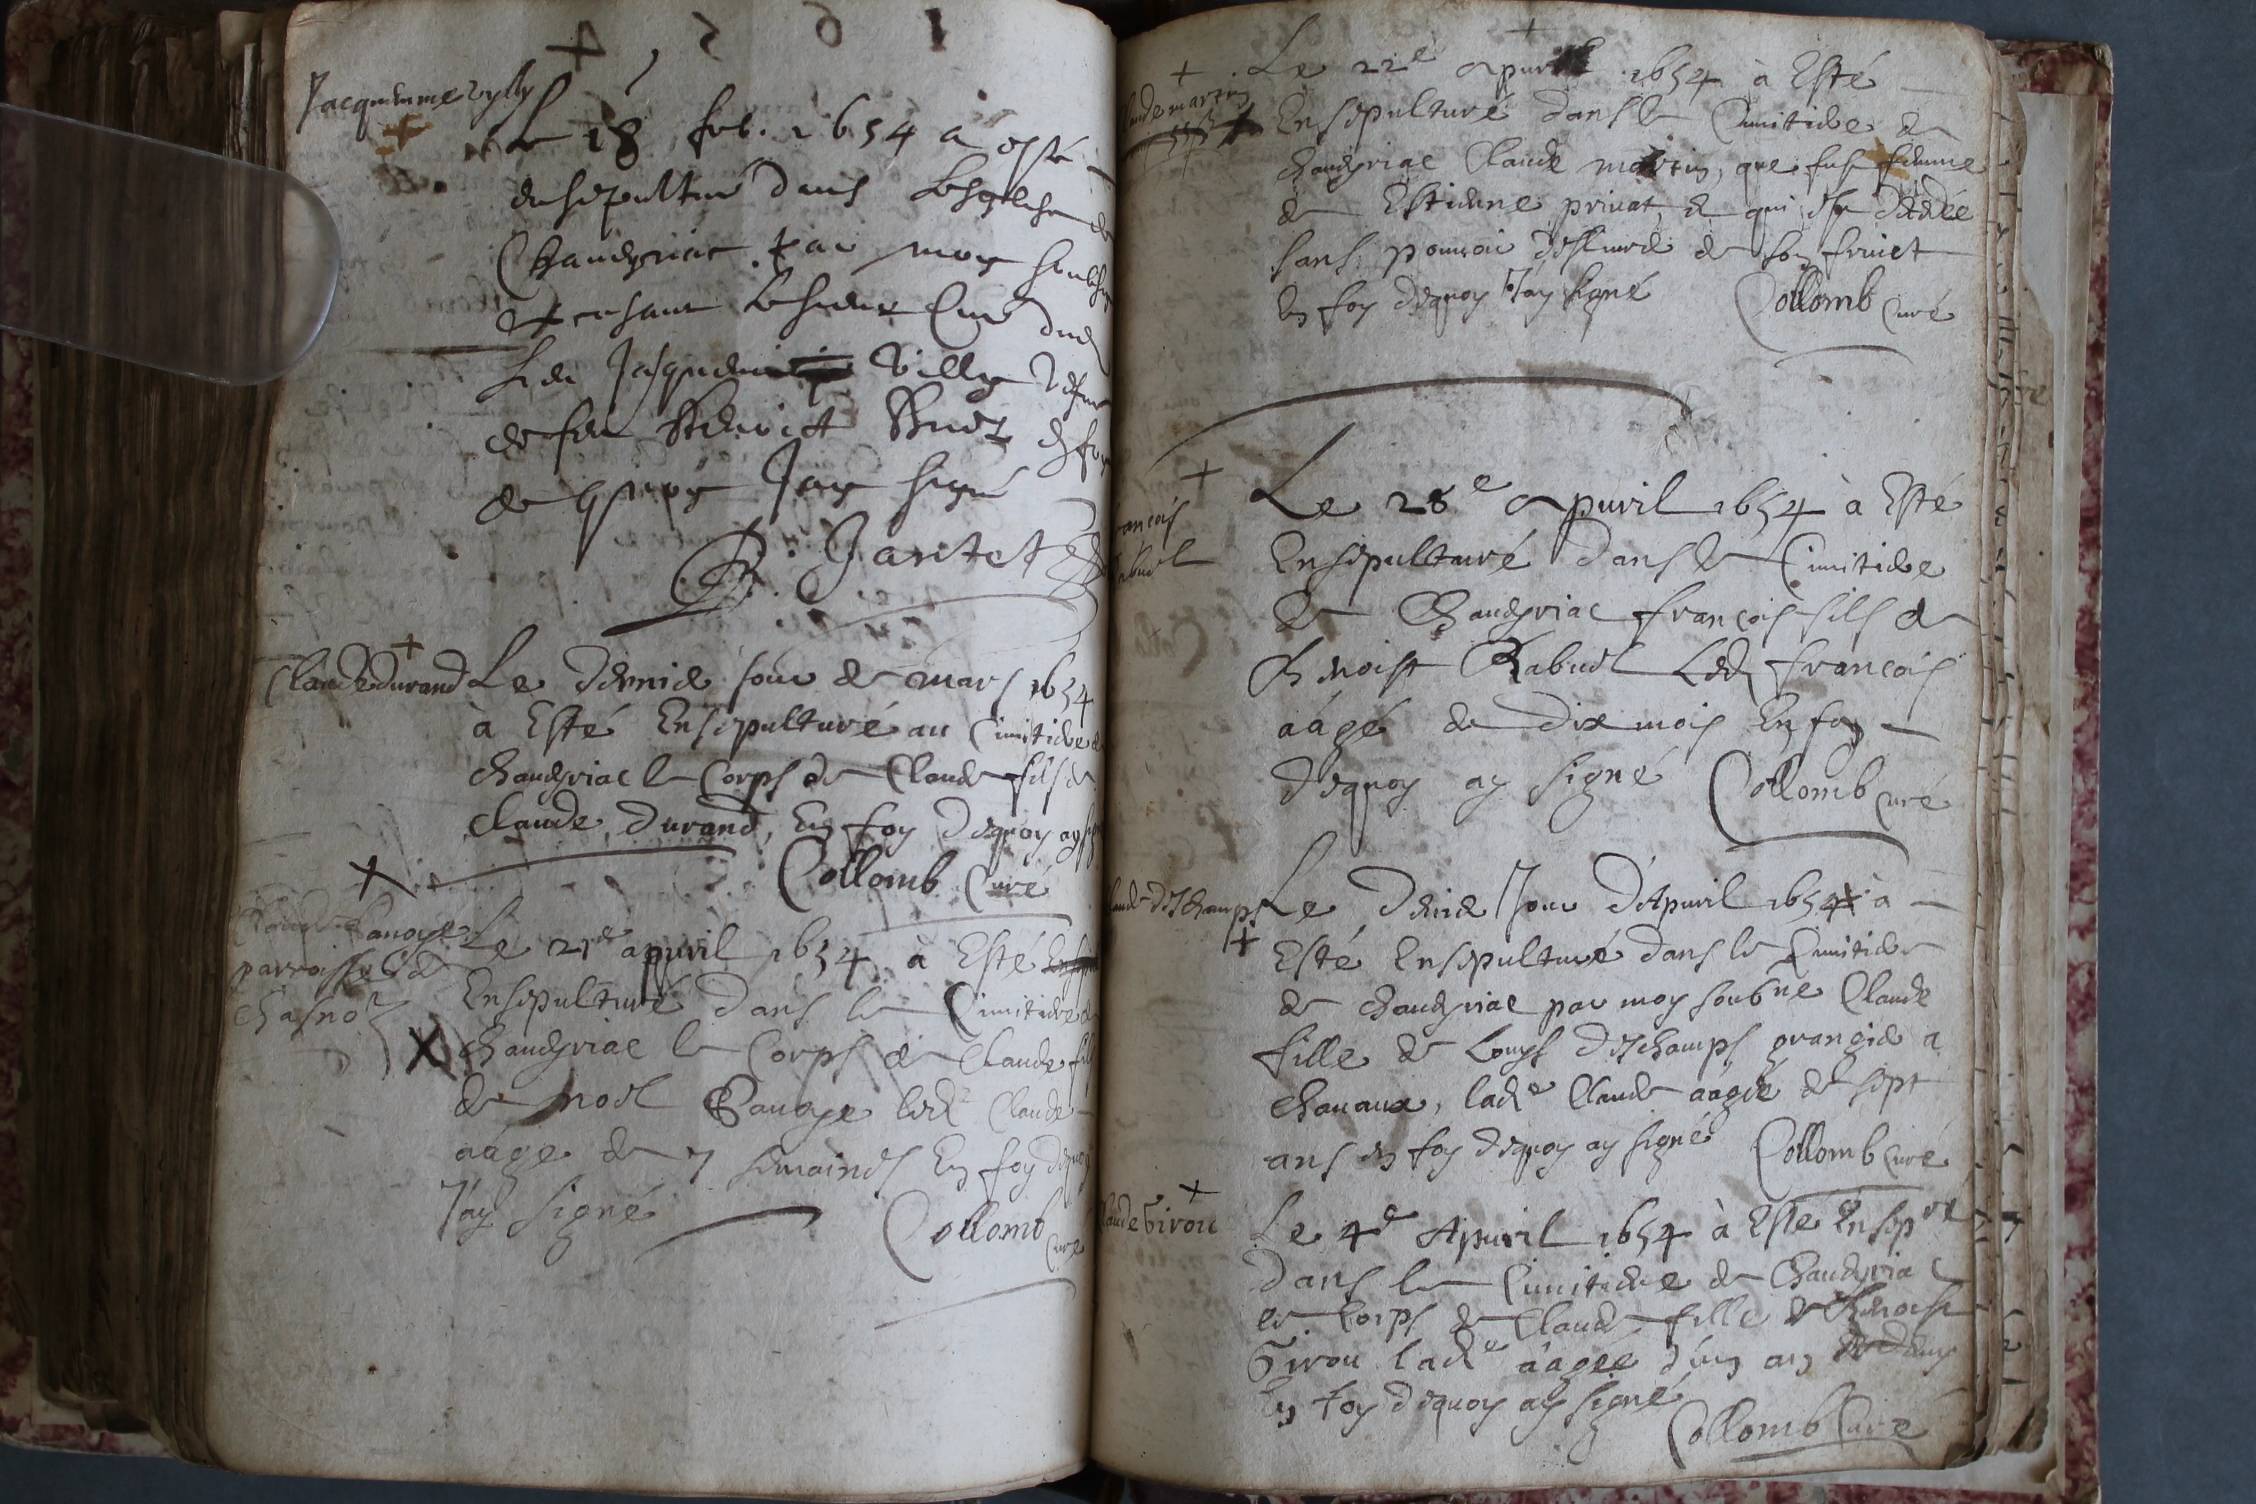 Jacquemme vylly
Le 18 feb. 1654 a esté
ensepulturé dans Leshglise de
Chandyriac par moy soubsigné
Le sieur Curé dud
villy vefve
de feu en foy
de quoy Jay signé
Jantet
Claude durand
Le dernier Jour de mars 1654
à Esté Ensepulturé au Cimitiere de
chandyriac le Corps de Claude fils de
Claude durand, En foy dequoy ay signé
Collomb Curé
parroisse de
Le 21e apvril 1654 à Esté
Ensepulturé dans le Cimitiere de
chandyriac le Corps de Claude fils
de Noel led Claude
aâge de 7 semaines En foy dequoy
J'ay signé Collomb Curé
Claude martin
Le 22e Apvril 1654 à Esté
Ensepulturé dans le Cimitiere de
chandyriac Claude martin, que fust femme
de Estienne privat, & qui est
sans pouvoir de son fruict
En foy dequoy J'ay signé Collomb Curé
francois
Rabuel
Le 28e Apvril 1654 à Esté
Ensepulturé dans le Cimitiere
de Chandyriac francois fils de
Benoist Rabuel Led francois
aâgé de dix mois En foy
dequoy ay signé Collomb Curé
Claude deschamps
Le Jour d'Apvril 1654 à
Esté Ensepulturé dans le Cimitiere
de chandyriac par moy soubne Claude
fille de Louys deschamps grangier a
chavaux, lade Claude aâgée de sept
ans en foy dequoy ay signé Collomb Curé
Claude Girou
Le 4e Apvril 1654 à Esté Ensepré
dans le Cimitiere de Chandyriac
le Corps de Claude fille de Benoist
Girou lade aâgee d'un an
En foy dequoy ay signé
Collomb Curé